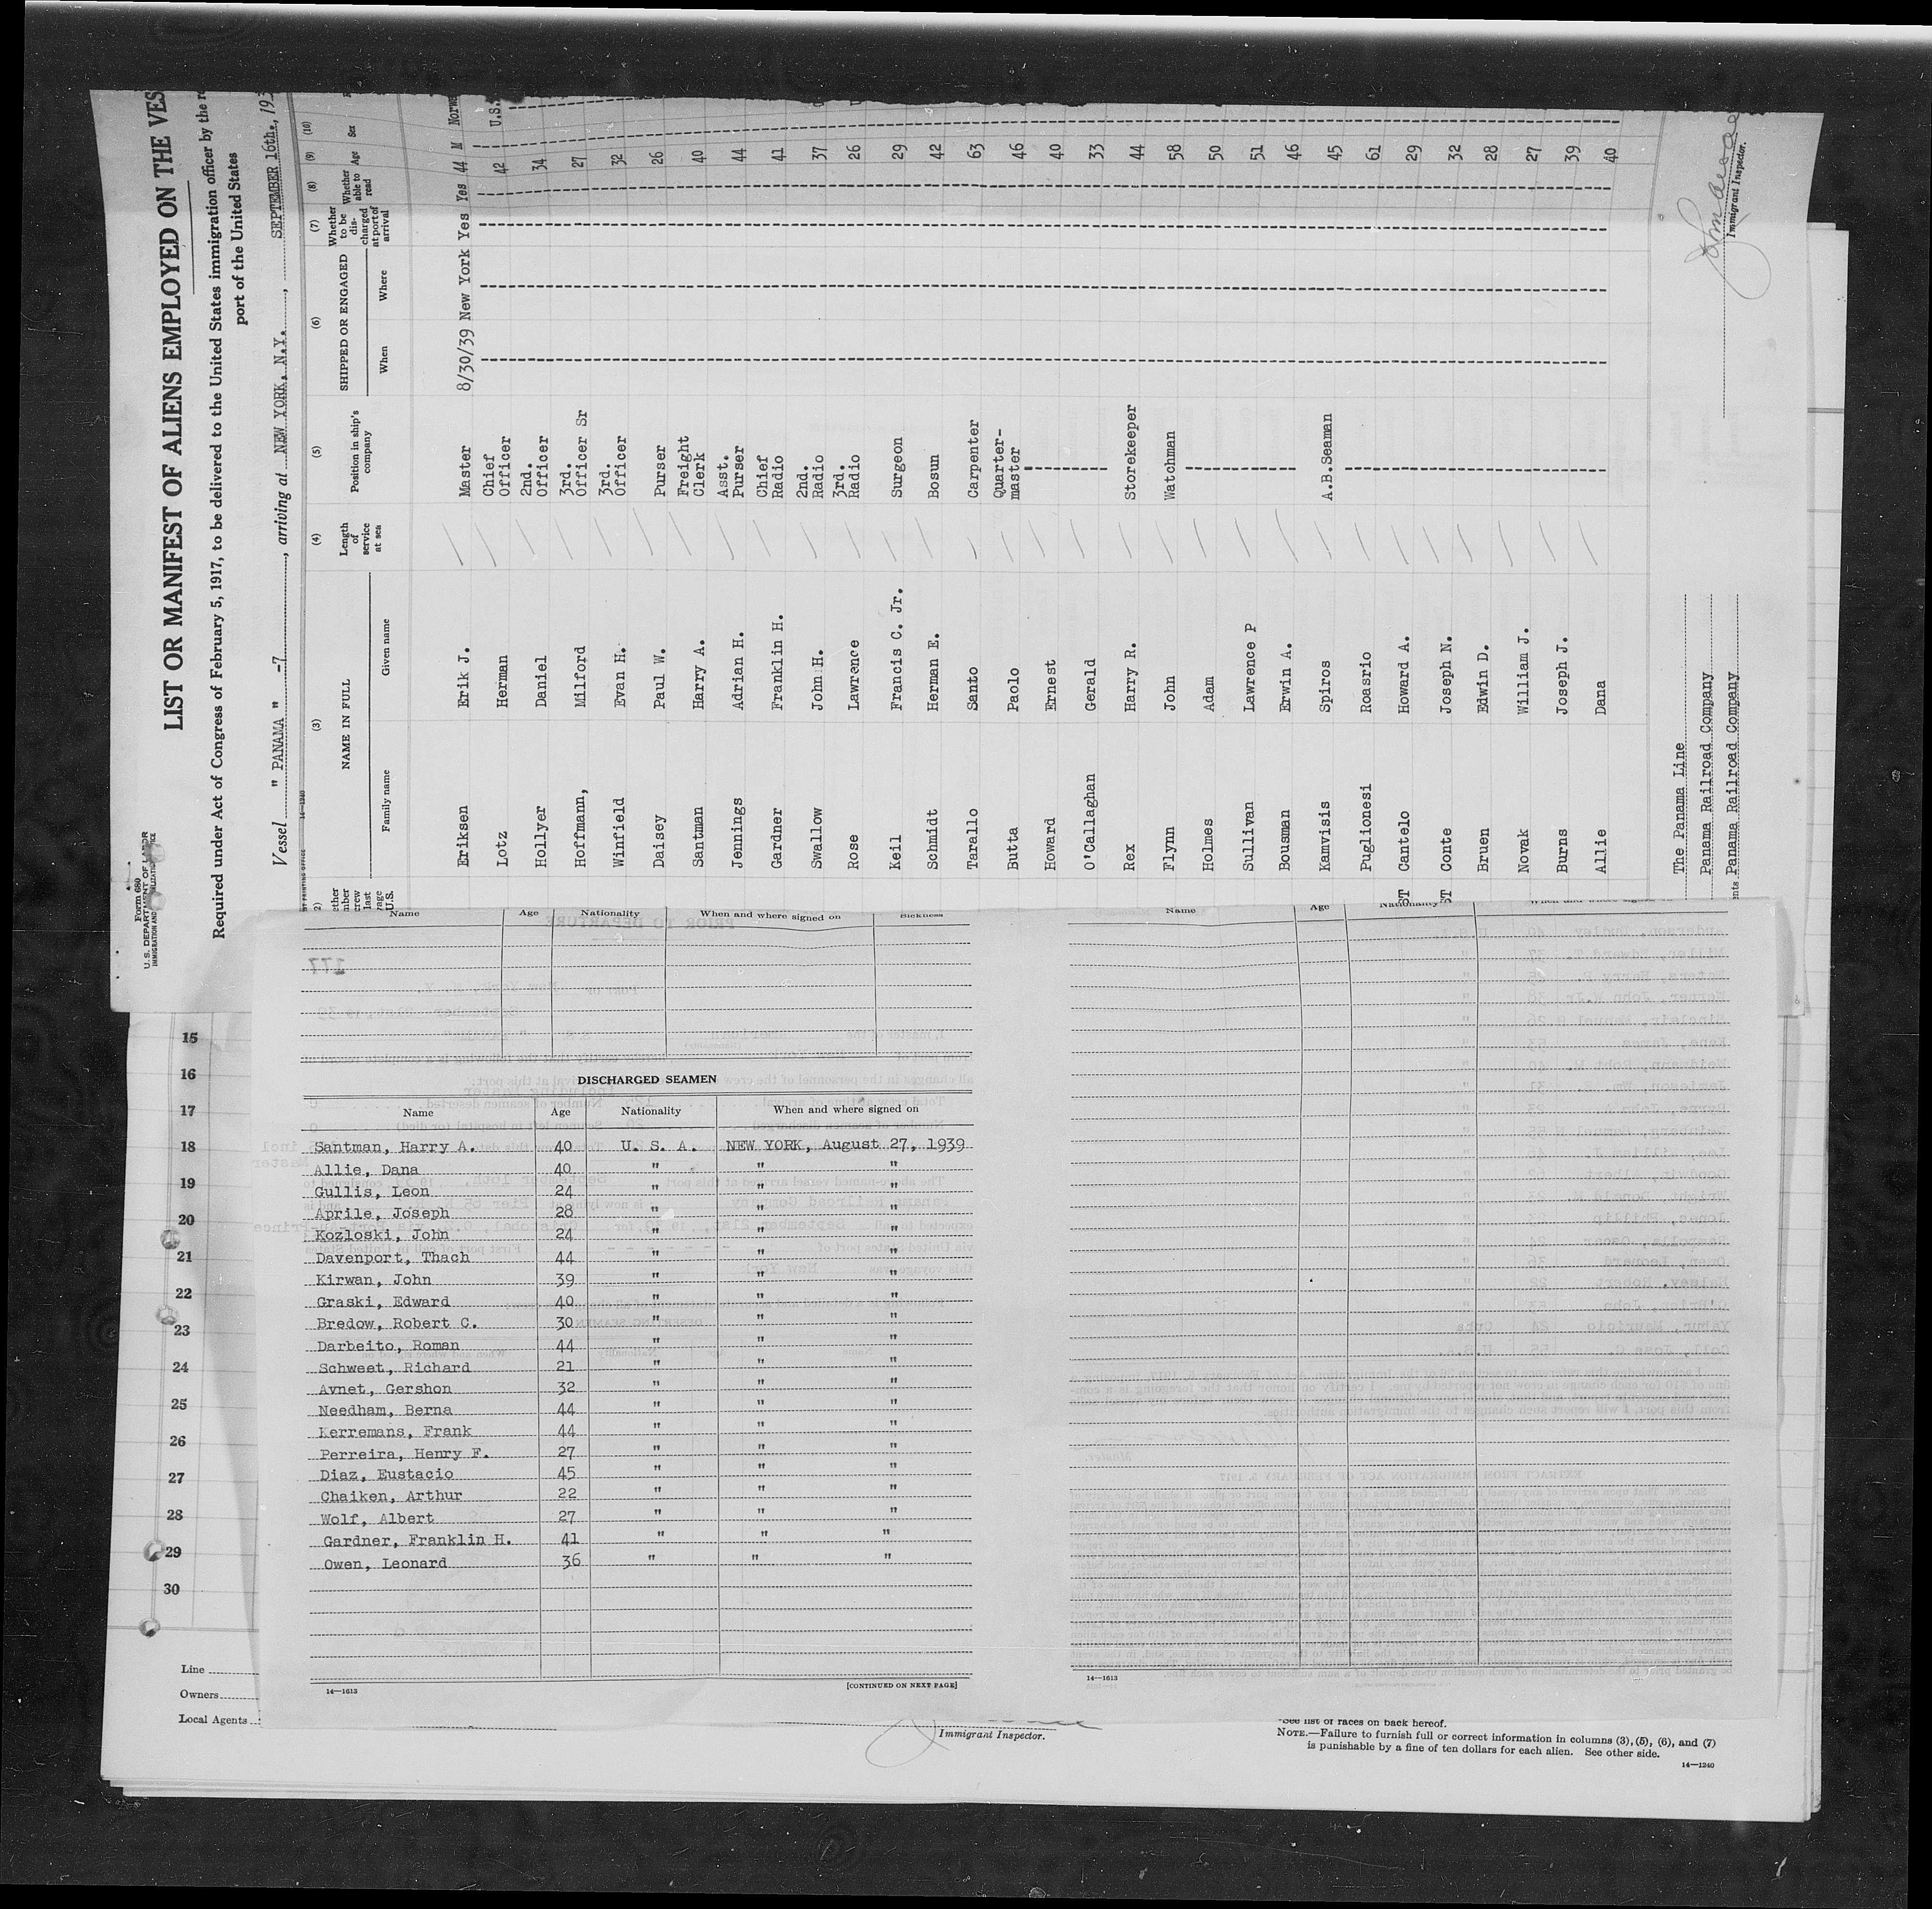 Form 680
U. S. DEPARTMENT OF LABOR
LIST OR MANIFEST OF ALIENS EMPLOYED ON THE VES
Required under Act of Congress of February 5, 1917, to be delivered to the United States immigration officer by the re
port of the United States
Vessel " PANAMA " -7, arriving at NEW YORK, N.Y., SEPTEMBER 16th., 193
14—1240
(3) (4) (5) (6) (7) (8) (9) (10)
NAME IN FULL Length of service at sea Position in ship's company SHIPPED OR ENGAGED Whether to be discharged at port of arrival Whether able to read Age Sex
Family name Given name When Where
Eriksen Erik J. Master 8/30/39 New York Yes Yes 44 M Norwe
Lotz Herman Chief Officer 42 U.S.
Hollyer Daniel 2nd. Officer 34
Hoffmann, Milford 3rd. Officer Sr 27
Winfield Evan H. 3rd. Officer 32
Daisey Paul W. Purser 26
Santman Harry A. Freight Clerk 40
Jennings Adrian H. Asst. Purser 44
Gardner Franklin H. Chief Radio 41
Swallow John H. 2nd. Radio 37
Rose Lawrence 3rd. Radio 26
Keil Francis C. Jr. Surgeon 29
Schmidt Herman E. Bosun 42
Tarallo Santo Carpenter 63
Butta Paolo Quarter-master 46
Howard Ernest 40
O'Callaghan Gerald 33
Rex Harry R. Storekeeper 44
Flynn John Watchman 58
Holmes Adam 50
Sullivan Lawrence P 51
Bousman Erwin A. 46
Kamvisis Spiros A.B.Seaman 45
Puglionesi Roasrio 61
Cantelo Howard A. 29
Conte Joseph N. 32
Bruen Edwin D. 28
Novak William J. 27
Burns Joseph J. 39
Allie Dana 40
The Panama Line
Panama Railroad Company
Panama Railroad Company
Immigrant Inspector.
Name Age Nationality When and where signed on Sickness
DISCHARGED SEAMEN
Name Age Nationality When and where signed on
Santman, Harry A. 40 U. S. A. NEW YORK, August 27, 1939
Allie, Dana 40 " " "
Gullis, Leon 24 " " "
Aprile, Joseph 28 " " "
Kozloski, John 24 " " "
Davenport, Thach 44 " " "
Kirwan, John 39 " " "
Graski, Edward 40 " " "
Bredow, Robert C. 30 " " "
Darbeito, Roman 44 " " "
Schweet, Richard 21 " " "
Avnet, Gershon 32 " " "
Needham, Berna 44 " " "
Kerremans, Frank 44 " " "
Perreira, Henry F. 27 " " "
Diaz, Eustacio 45 " " "
Chaiken, Arthur 22 " " "
Wolf, Albert 27 " " "
Gardner, Franklin H. 41 " " "
Owen, Leonard 36 " " "
14—1613 [CONTINUED ON NEXT PAGE]
Name Age Nationality
14—1613
15
16
17
18
19
20
21
22
23
24
25
26
27
28
29
30
Line
Owners
Local Agents
Immigrant Inspector.
*See list of races on back hereof.
NOTE.—Failure to furnish full or correct information in columns (3), (5), (6), and (7)
is punishable by a fine of ten dollars for each alien. See other side.
14—1240